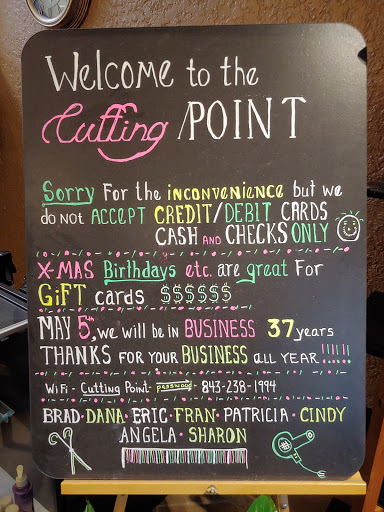 WELCOME to the
Cutting /POINT
Sorry For the inconvenience but we
do not ACCEPT CREDIT/DEBIT CARDS
CASH AND CHECKS ONLY
X-MAS Birthdays etc. are great For
GiFT cards $$$$$$
MAY 5th, we will be in BUSINESS 37 years
THANKS FOR YOUR BUSINESS all YEAR !!!!!!
WiFi - Cutting Point - password - 843-238-1994
BRAD · DANA · ERIC · FRAN · PATRICIA · CINDY
ANGELA · SHARON